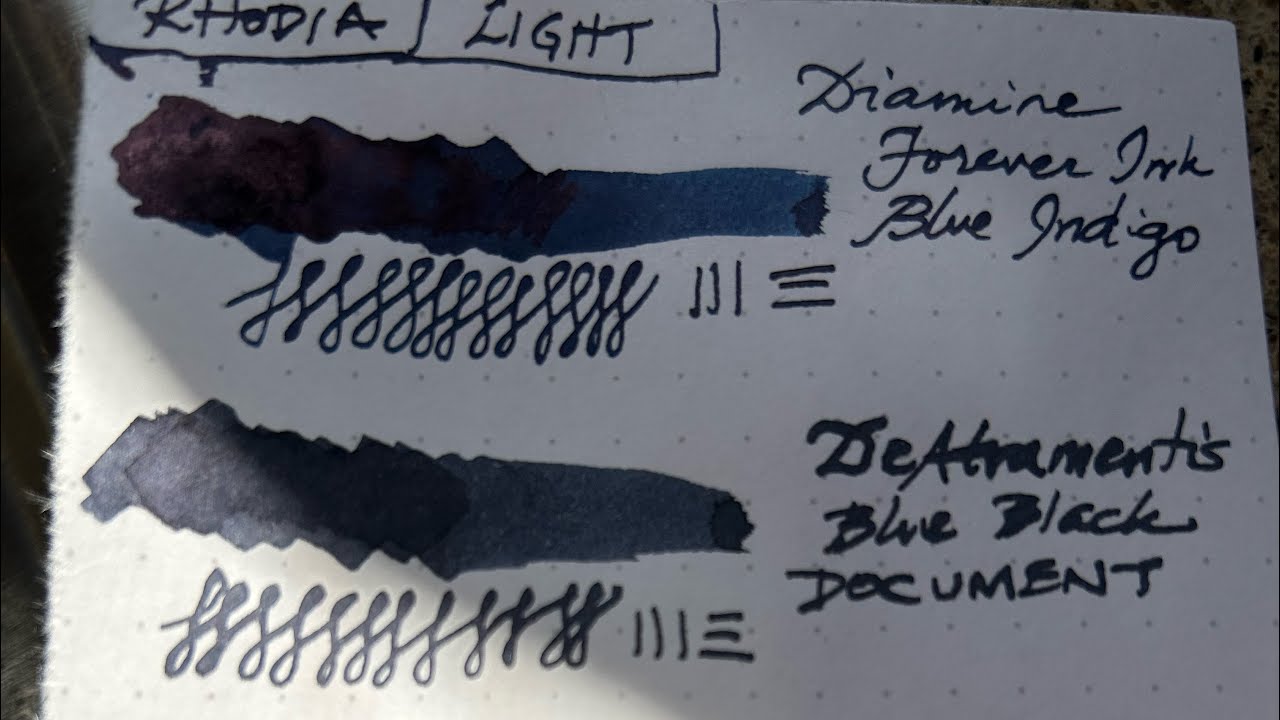 RHODIA LIGHT
Diamine
Forever Ink
Blue Indigo
DeAtramentis
Blue Black
DOCUMENT